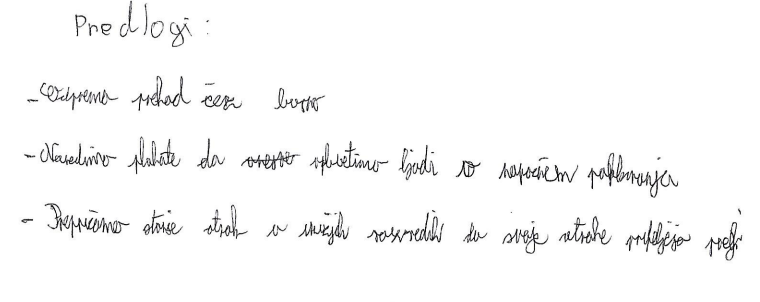 Predlogi:
- Odpremo prehod čez
- Naredimo plakate da osvestimo ljudi o napačnem parkiranju
- Prepričamo starše otrok v nižjih razredih da svoje otroke pripeljejo peš